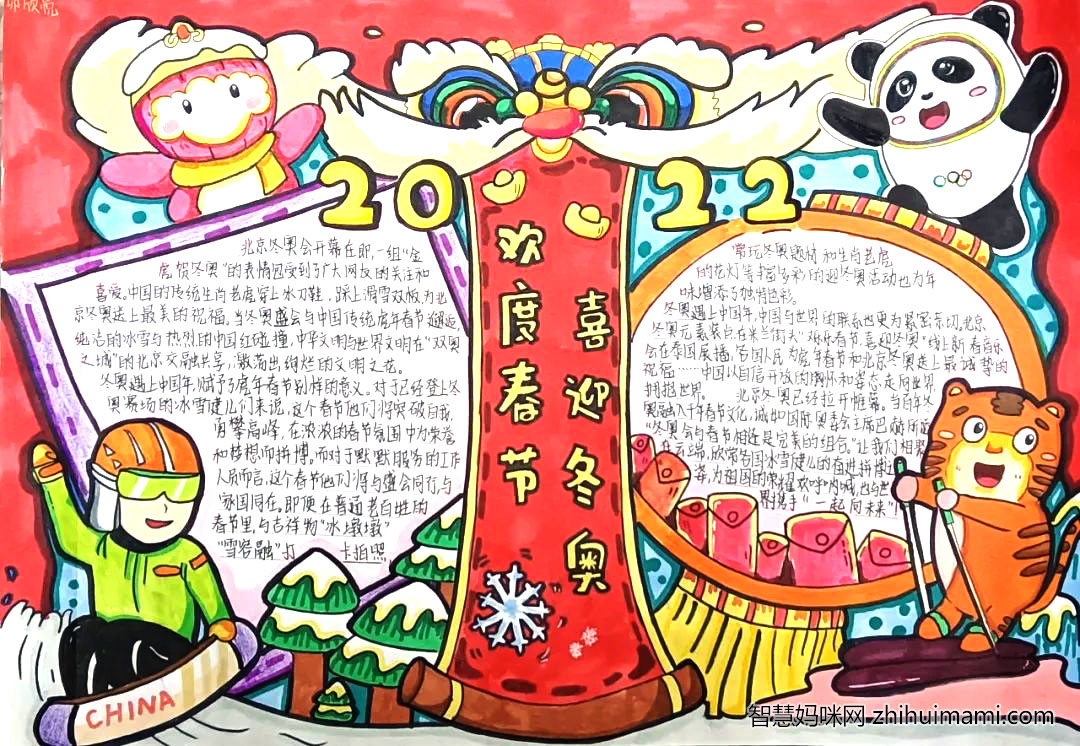 2022
欢度春节
喜迎冬奥
北京冬奥会开幕在即,一组“金
虎贺冬奥”的表情包受到了广大网友的关注和
喜爱。中国的传统生肖老虎穿上冰刀鞋,踩上滑雪双板,为北
京冬奥送上最美的祝福。当冬奥盛会与中国传统虎年春节邂逅,
纯洁的冰雪与热烈的中国红碰撞,中华文明与世界文明在“双奥
之城”的北京交融共享,散荡出绚烂的文明之花。
冬奥遇上中国年,赋予了虎年春节别样的意义。对于已经登上冬
奥赛场的冰雪健儿们来说,这个春节他们将突破自我,
勇攀高峰,在浓浓的春节氛围中为荣誉
和梦想而拼搏。而对于默默服务的工作
人员而言,这个春节他们将与盛会同行,与
家国同在,即便在普通老百姓的
春节里,与吉祥物“冰墩墩”
“雪容融”打 卡拍照
常玩冬奥题材和生肖老虎
的花灯等丰富多彩的迎冬奥活动也为年
味增添了独特色彩。
冬奥遇上中国年,中国与世界的联系也更为紧密亲切。北京
冬奥元素装点在米兰街头“欢乐春节 喜迎冬奥”线上新春音乐
会在泰国展播,各国人民为虎年春节和北京冬奥送上最诚挚的
祝福……中国以自信开放的胸怀和姿态走向世界
拥抱世界。 北京冬奥已经拉开帷幕。当百年冬
奥融入千年春节文化,诚如国际奥委会主席巴赫所言
“冬奥会与春节相连是完美的组合。”让我们相聚
在云端,欣赏各国冰雪健儿的奋进拼搏
姿,为祖国的荣耀欢呼呐喊,也与世
界携手“一起向未来”!
CHINA
智慧妈咪网 zhihuimami.com